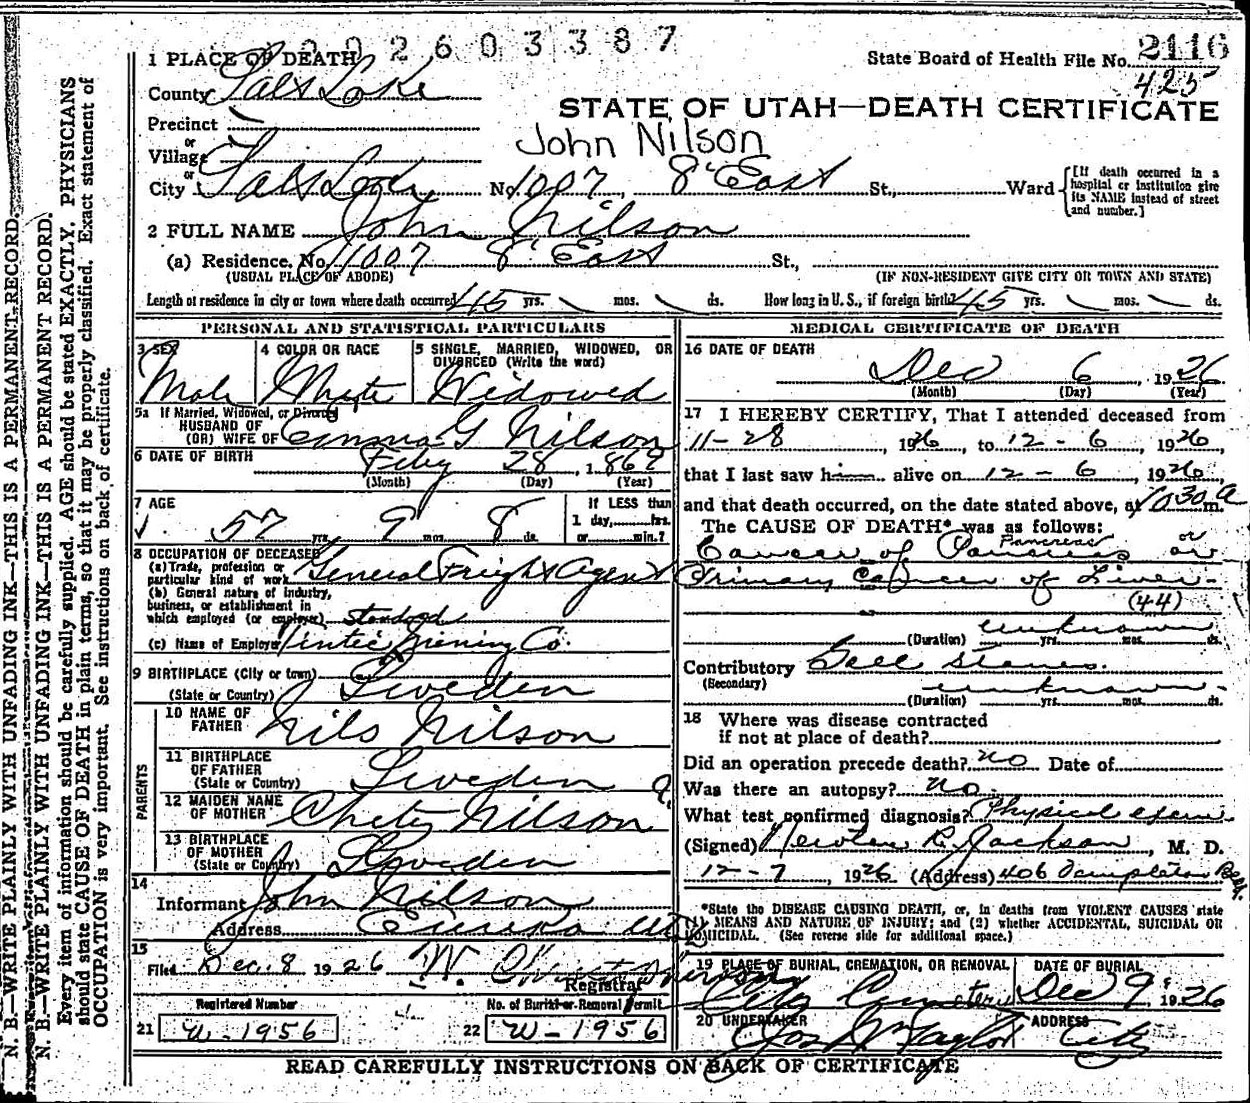 2 6 0 3 3 8 7
State Board of Health File No. 2116
425
1 PLACE OF DEATH
County Salt Lake
STATE OF UTAH—DEATH CERTIFICATE
Precinct
or
Village
John Nilson
or
City Salt Lake No. 1007 8" East St., Ward
[If death occurred in a hospital or institution give its NAME instead of street and number.]
2 FULL NAME John Nilson
(a) Residence. No. 1007 8" East St.,
(USUAL PLACE OF ABODE) (IF NON-RESIDENT GIVE CITY OR TOWN AND STATE)
Length of residence in city or town where death occurred 45 yrs. mos. ds. How long in U.S., if foreign birth? 45 yrs. mos. ds.
PERSONAL AND STATISTICAL PARTICULARS
3 SEX 4 COLOR OR RACE 5 SINGLE, MARRIED, WIDOWED, OR DIVORCED (Write the word)
Male White Widowed
5a If Married, Widowed, or Divorced
HUSBAND OF
(OR) WIFE OF G Nilson
6 DATE OF BIRTH Feby 28, 1869
(Month) (Day) (Year)
7 AGE If LESS than
57 yrs. 9 mos. 8 ds. 1 day, hrs.
or min.?
8 OCCUPATION OF DECEASED
(a) Trade, profession or
particular kind of work General Freight Agent
(b) General nature of industry,
business, or establishment in
which employed (or employer) Standard
(c) Name of Employer Tintic Mining Co.
9 BIRTHPLACE (City or town)
(State or Country) Sweden
PARENTS
10 NAME OF
FATHER Nils Nilson
11 BIRTHPLACE
OF FATHER
(State or Country) Sweden
12 MAIDEN NAME
OF MOTHER Nilson
13 BIRTHPLACE
OF MOTHER
(State or Country) Sweden
14
Informant John Nilson
Address Eureka Utah
15
Filed Dec. 8 1926
Registrar
Registered Number No. of Burial or Removal Permit
21 W-1956 22 W-1956
MEDICAL CERTIFICATE OF DEATH
16 DATE OF DEATH
Dec 6, 1926
(Month) (Day) (Year)
17 I HEREBY CERTIFY, That I attended deceased from
11-28, 1926, to 12-6, 1926,
that I last saw him alive on 12-6, 1926,
and that death occurred, on the date stated above, at 1030 a m.
The CAUSE OF DEATH* was as follows:
Pancreas or
Cancer of Pancreas or
Primary Cancer of Liver-
(44)
unknown
(Duration) yrs. mos. ds.
Contributory Gall Stones.
(Secondary)
unknown
(Duration) yrs. mos. ds.
18 Where was disease contracted
if not at place of death?
Did an operation precede death? no Date of
Was there an autopsy? no.
What test confirmed diagnosis? Physical exam.
(Signed) Newton R. Jackson, M. D.
12-7, 1926 (Address) 406 Templeton Bldg.
*State the DISEASE CAUSING DEATH, or, in deaths from VIOLENT CAUSES state
(1) MEANS AND NATURE OF INJURY; and (2) whether ACCIDENTAL, SUICIDAL OR
HOMICIDAL. (See reverse side for additional space.)
19 PLACE OF BURIAL, CREMATION, OR REMOVAL DATE OF BURIAL
City Cemetery Dec 9, 1926
20 UNDERTAKER ADDRESS
Jos Wm Taylor City
READ CAREFULLY INSTRUCTIONS ON BACK OF CERTIFICATE
N. B.—WRITE PLAINLY WITH UNFADING INK—THIS IS A PERMANENT RECORD.
N. B.—WRITE PLAINLY WITH UNFADING INK—THIS IS A PERMANENT RECORD.
Every item of information should be carefully supplied. AGE should be stated EXACTLY. PHYSICIANS
should state CAUSE OF DEATH in plain terms, so that it may be properly classified. Exact statement of
OCCUPATION is very important. See instructions on back of certificate.